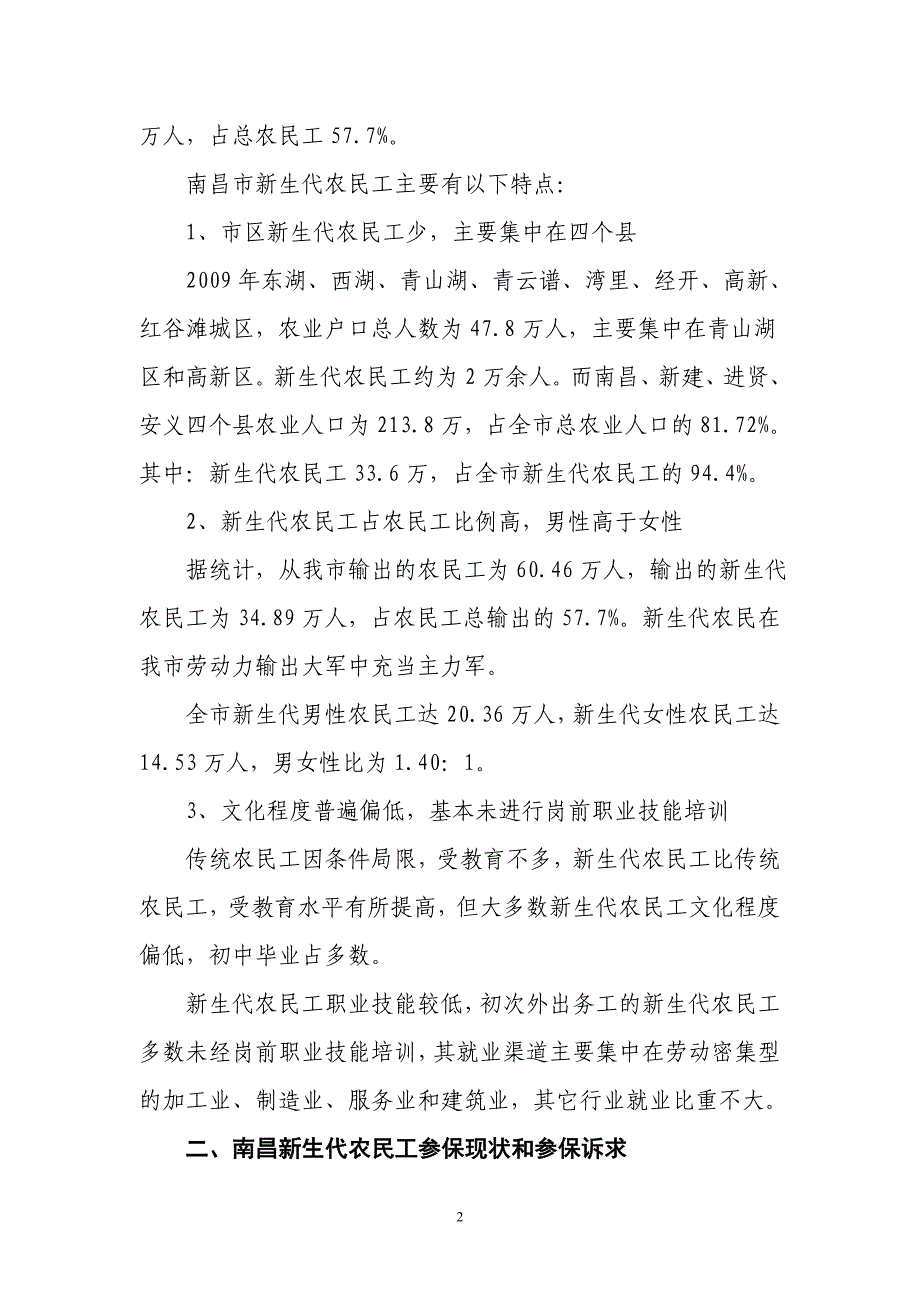 万人，占总农民工 57.7%。
南昌市新生代农民工主要有以下特点：
1、市区新生代农民工少，主要集中在四个县
2009 年东湖、西湖、青山湖、青云谱、湾里、经开、高新、
红谷滩城区，农业户口总人数为 47.8 万人，主要集中在青山湖
区和高新区。新生代农民工约为 2 万余人。而南昌、新建、进贤、
安义四个县农业人口为 213.8 万，占全市总农业人口的 81.72%。
其中：新生代农民工 33.6 万，占全市新生代农民工的 94.4%。
2、新生代农民工占农民工比例高，男性高于女性
据统计，从我市输出的农民工为 60.46 万人，输出的新生代
农民工为 34.89 万人，占农民工总输出的 57.7%。新生代农民在
我市劳动力输出大军中充当主力军。
全市新生代男性农民工达 20.36 万人，新生代女性农民工达
14.53 万人，男女性比为 1.40：1。
3、文化程度普遍偏低，基本未进行岗前职业技能培训
传统农民工因条件局限，受教育不多，新生代农民工比传统
农民工，受教育水平有所提高，但大多数新生代农民工文化程度
偏低，初中毕业占多数。
新生代农民工职业技能较低，初次外出务工的新生代农民工
多数未经岗前职业技能培训，其就业渠道主要集中在劳动密集型
的加工业、制造业、服务业和建筑业，其它行业就业比重不大。
二、南昌新生代农民工参保现状和参保诉求
2